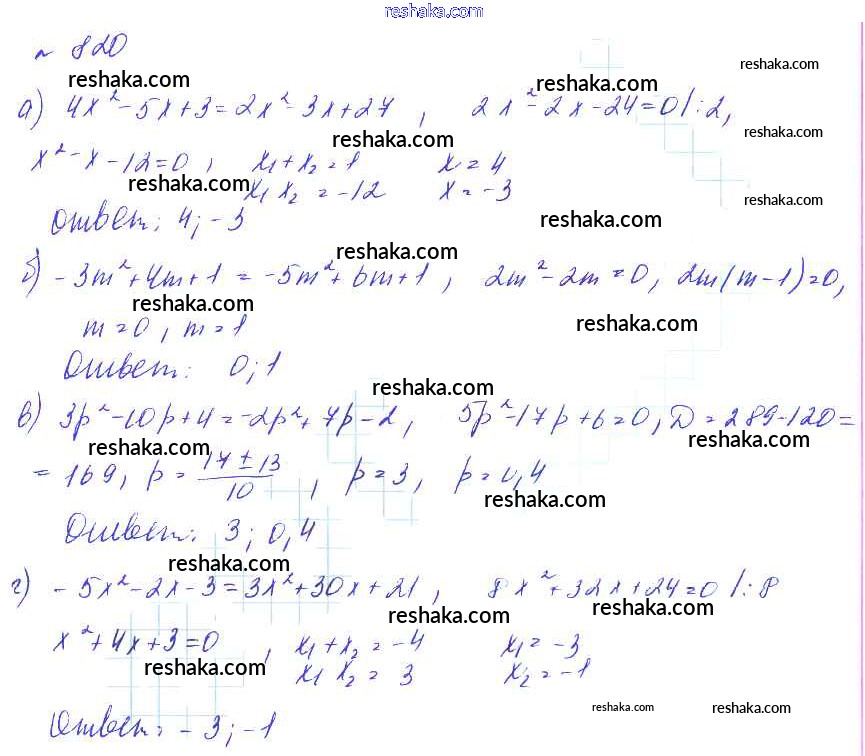 reshaka.com
№ 820
reshaka.com reshaka.com reshaka.com
а) 4x² - 5x + 3 = 2x² - 3x + 27 , 2x² - 2x - 24 = 0 /: 2,
reshaka.com reshaka.com
x² - x - 12 = 0 , x₁ + x₂ = 1 x = 4
reshaka.com x₁ x₂ = -12 x = -3 reshaka.com
Ответ: 4; -3 reshaka.com
reshaka.com
б) -3m² + 4m + 1 = -5m² + 6m + 1 , 2m² - 2m = 0, 2m(m - 1) = 0,
reshaka.com reshaka.com
m = 0 , m = 1
Ответ: 0; 1
reshaka.com
в) 3p² - 10p + 4 = -2p² + 7p - 2, 5p² - 17p + 6 = 0, D = 289 - 120 =
reshaka.com reshaka.com
= 169, p = (17 ± 13)/10 , p = 3, p = 0,4
reshaka.com
Ответ: 3; 0,4
reshaka.com
г) -5x² - 2x - 3 = 3x² + 30x + 21 , 8x² + 32x + 24 = 0 /: 8
reshaka.com reshaka.com
x² + 4x + 3 = 0 , x₁ + x₂ = -4 x₁ = -3
reshaka.com x₁ x₂ = 3 x₂ = -1
reshaka.com reshaka.com
Ответ: -3; -1